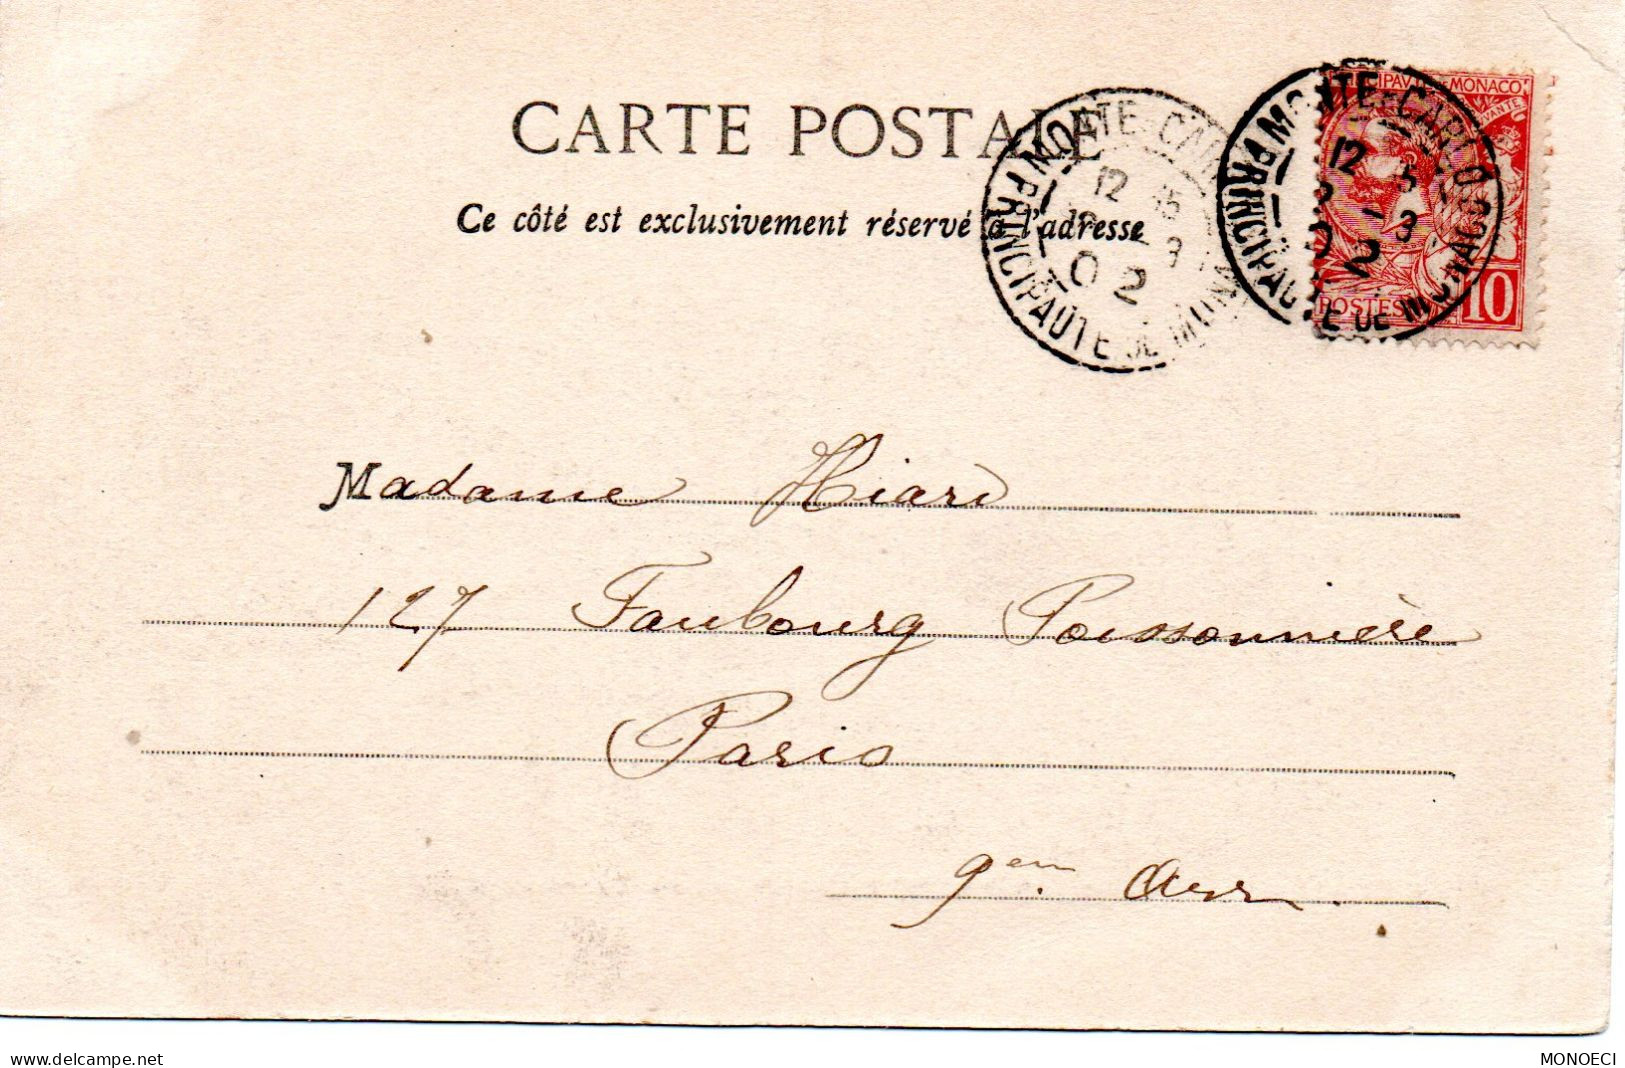 CARTE POSTALE
Ce côté est exclusivement réservé à l'adresse
MONTE-CARLO
PRINCIPAUTÉ DE MONACO
12
02
PRINCIPAUTÉ DE MONACO
POSTES
10
Madame Hiard
127 Faubourg Poissonnière
Paris
9em. Arr.
www.delcampe.net
MONOECI